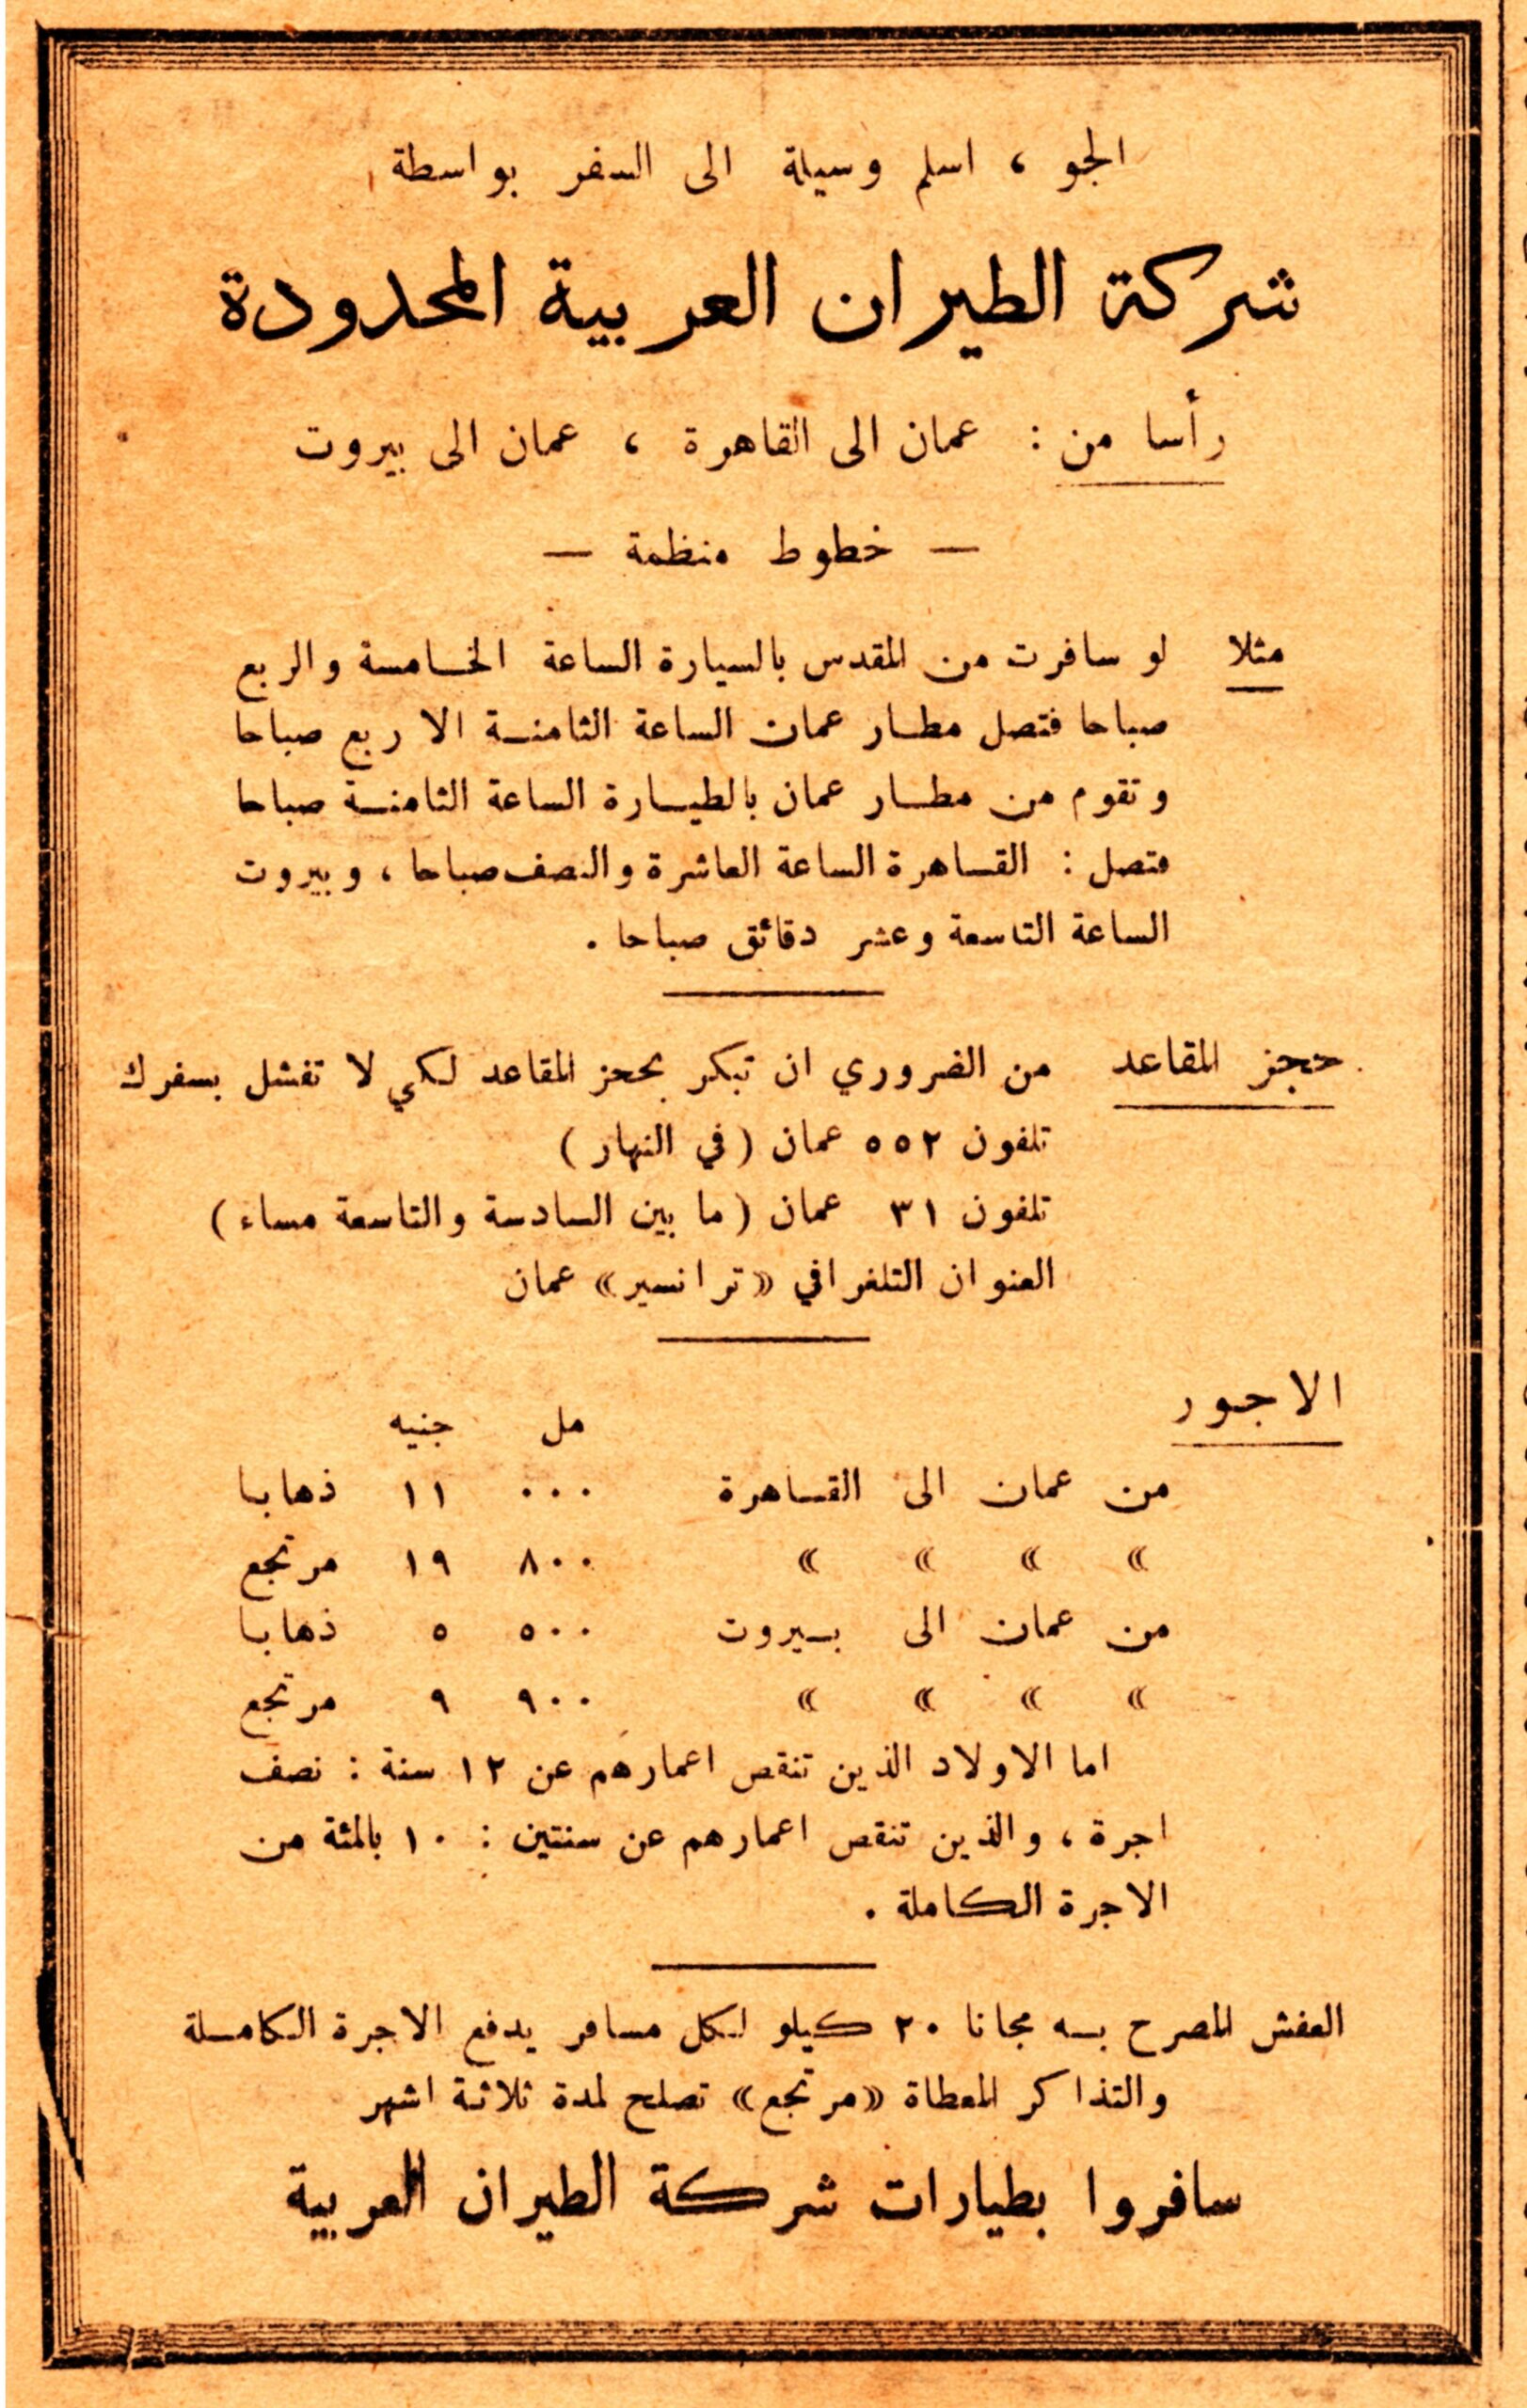 الجو ، اسلم وسيلة الى السفر بواسطة
شركة الطيران العربية المحدودة
رأسا من : عمان الى القاهرة ، عمان الى بيروت
— خطوط منظمة —
مثلا لو سافرت من المقدس بالسيارة الساعة الخامسة والربع
صباحا فتصل مطار عمان الساعة الثامنة الا ربع صباحا
وتقوم من مطار عمان بالطيارة الساعة الثامنة صباحا
فتصل : القاهرة الساعة العاشرة والنصف صباحا ، وبيروت
الساعة التاسعة وعشر دقائق صباحا .
حجز المقاعد من الضروري ان تبكر بحجز المقاعد لكي لا تفشل بسفرك
تلفون ٥٥٢ عمان ( في النهار )
تلفون ٣١ عمان ( ما بين السادسة والتاسعة مساء )
العنوان التلغرافي «ترانسير» عمان
الاجور
مل جنيه
من عمان الى القاهرة ٠٠٠ ١١ ذهابا
» » » » ٨٠٠ ١٩ مرتجع
من عمان الى بيروت ٥٠٠ ٥ ذهابا
» » » » ٩٠٠ ٩ مرتجع
اما الاولاد الذين تنقص اعمارهم عن ١٢ سنة : نصف
اجرة ، والذين تنقص اعمارهم عن سنتين : ١٠ بالمئة من
الاجرة الكاملة .
العفش المصرح به مجانا ٢٠ كيلو لكل مسافر يدفع الاجرة الكاملة
والتذاكر المعطاة «مرتجع» تصلح لمدة ثلاثة اشهر
سافروا بطيارات شركة الطيران العربية